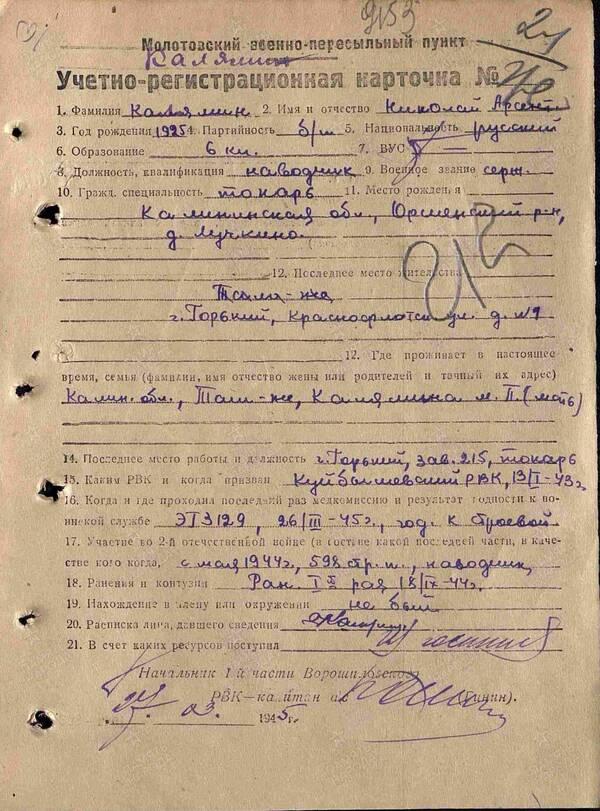 Молотовский военно-пересыльный пункт
Калямин
Учетно-регистрационная карточка №
1. Фамилия Калямин 2. Имя и отчество Николай Арсент
3. Год рождения 1925 4. Партийность б/п 5. Национальность русский
6. Образование 6 кл. 7. ВУС —
8. Должность, квалификация наводчик 9. Военное звание серж.
10. Гражд. специальность токарь 11. Место рождения
Калининская обл., р-н,
д. Лучкино.
12. Последнее место жительства
г. Горький, Краснофлотск. ул. д. №1
12. Где проживает в настоящее
время, семья (фамилии, имя отчество жены или родителей и точный их адрес)
Калин. обл., Там-же, Калямина М. П. (мать)
14. Последнее место работы и должность г. Горький, зав. 215, токарь
15. Каким РВК и когда призван Куйбышевский РВК, 13/I-43г.
16. Когда и где проходил последний раз медкомиссию и результат годности к во-
инской службе ЭГ 3129, 26/III-45г., год. к строевой
17. Участие во 2-й отечественной войне (в составе какой последней части, в каче-
стве кого когда, с мая 1944г., 598 стр. п., наводчик,
18. Ранения и контузии Ран. I раз 18/IX-44г.
19. Нахождение в плену или окружении не был
20. Расписка лица, давшего сведения
21. В счет каких ресурсов поступил госпит
Начальник 1-й части Ворошиловского
РВК—капитан а/с
27. 03. 1945г.